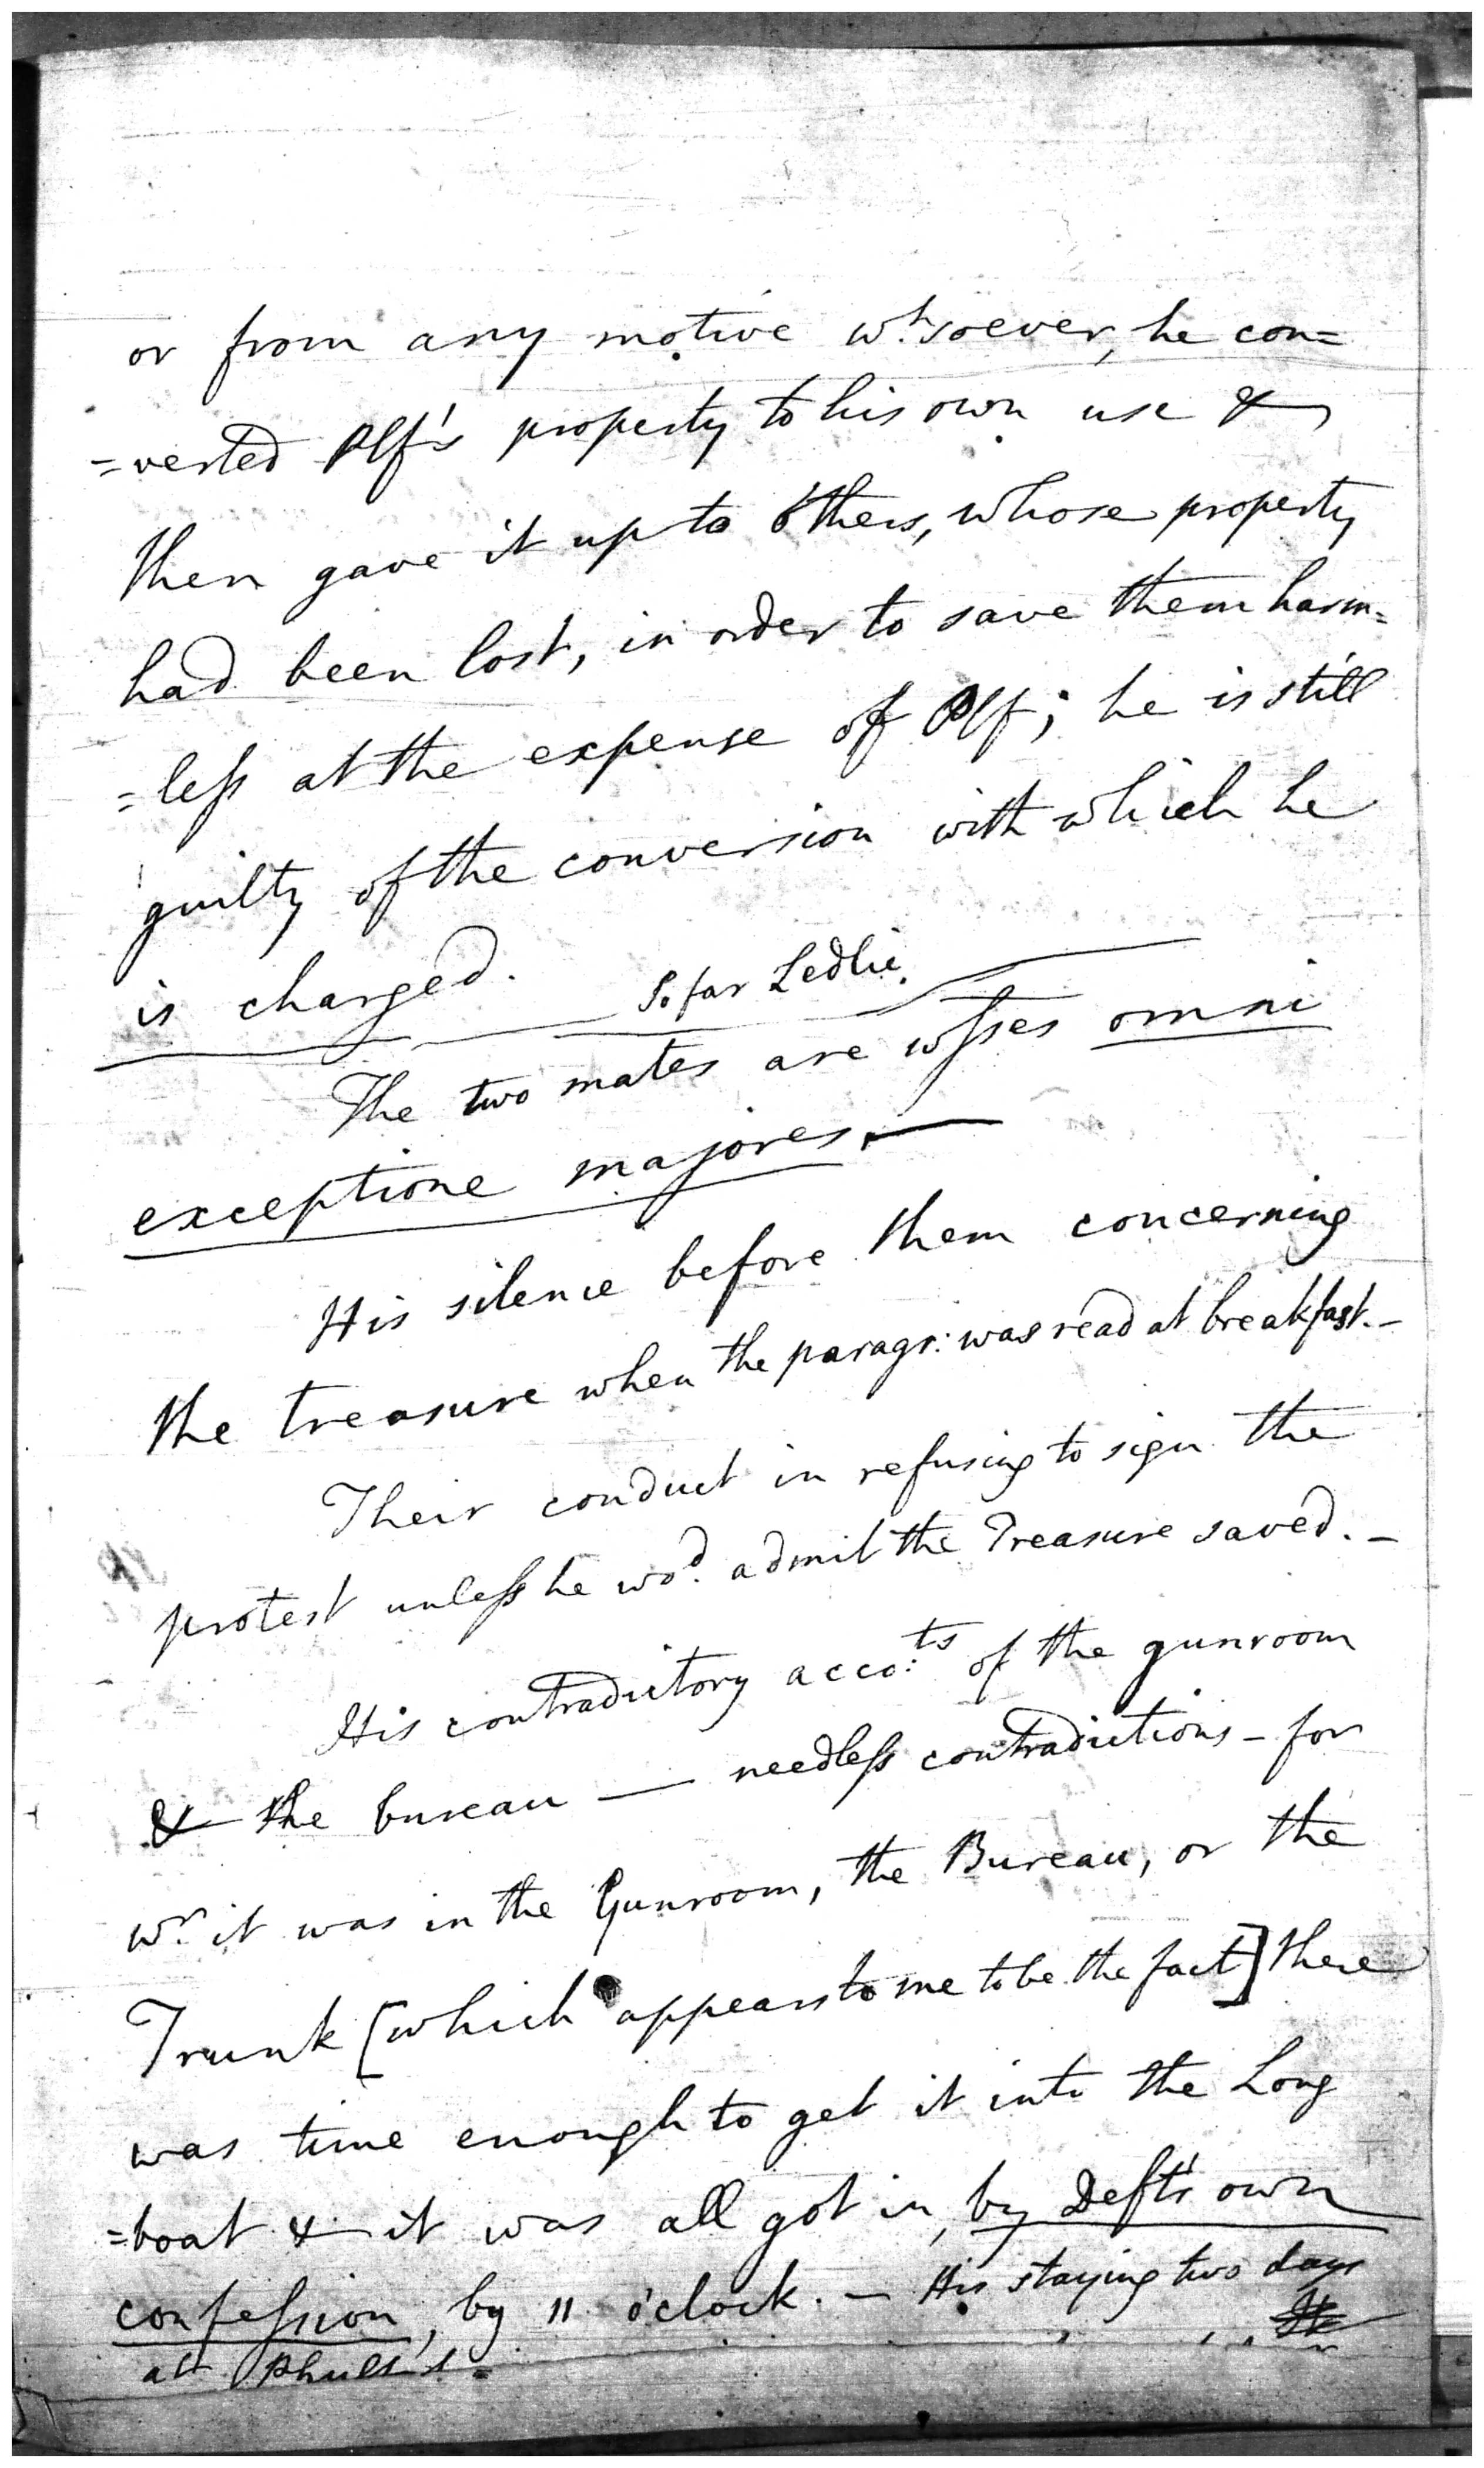 or from any motive wh.soever, he con=
=verted Plf's property to his own use &
then gave it up to others, whose property
had been lost, in order to save them harm=
=less at the expense of Plf; he is still
guilty of the conversion with which he
is charged. So far Ledlie.
The two mates are wsses omni
exceptione majores. —
His silence before them concerning
the treasure when the paragr: was read at breakfast. –
Their conduct in refusing to sign the
protest unless he wod. admit the Treasure saved. –
His contradictory acco:ts of the gunroom
& the bureau — needless contradictions – for
wr. it was in the Gunroom, the Bureau, or the
Trunk [which appears to me to be the fact] there
was time enough to get it into the Long
=boat & it was all got in, by Deft's own
confession, by 11 o'clock. – His staying two days
at